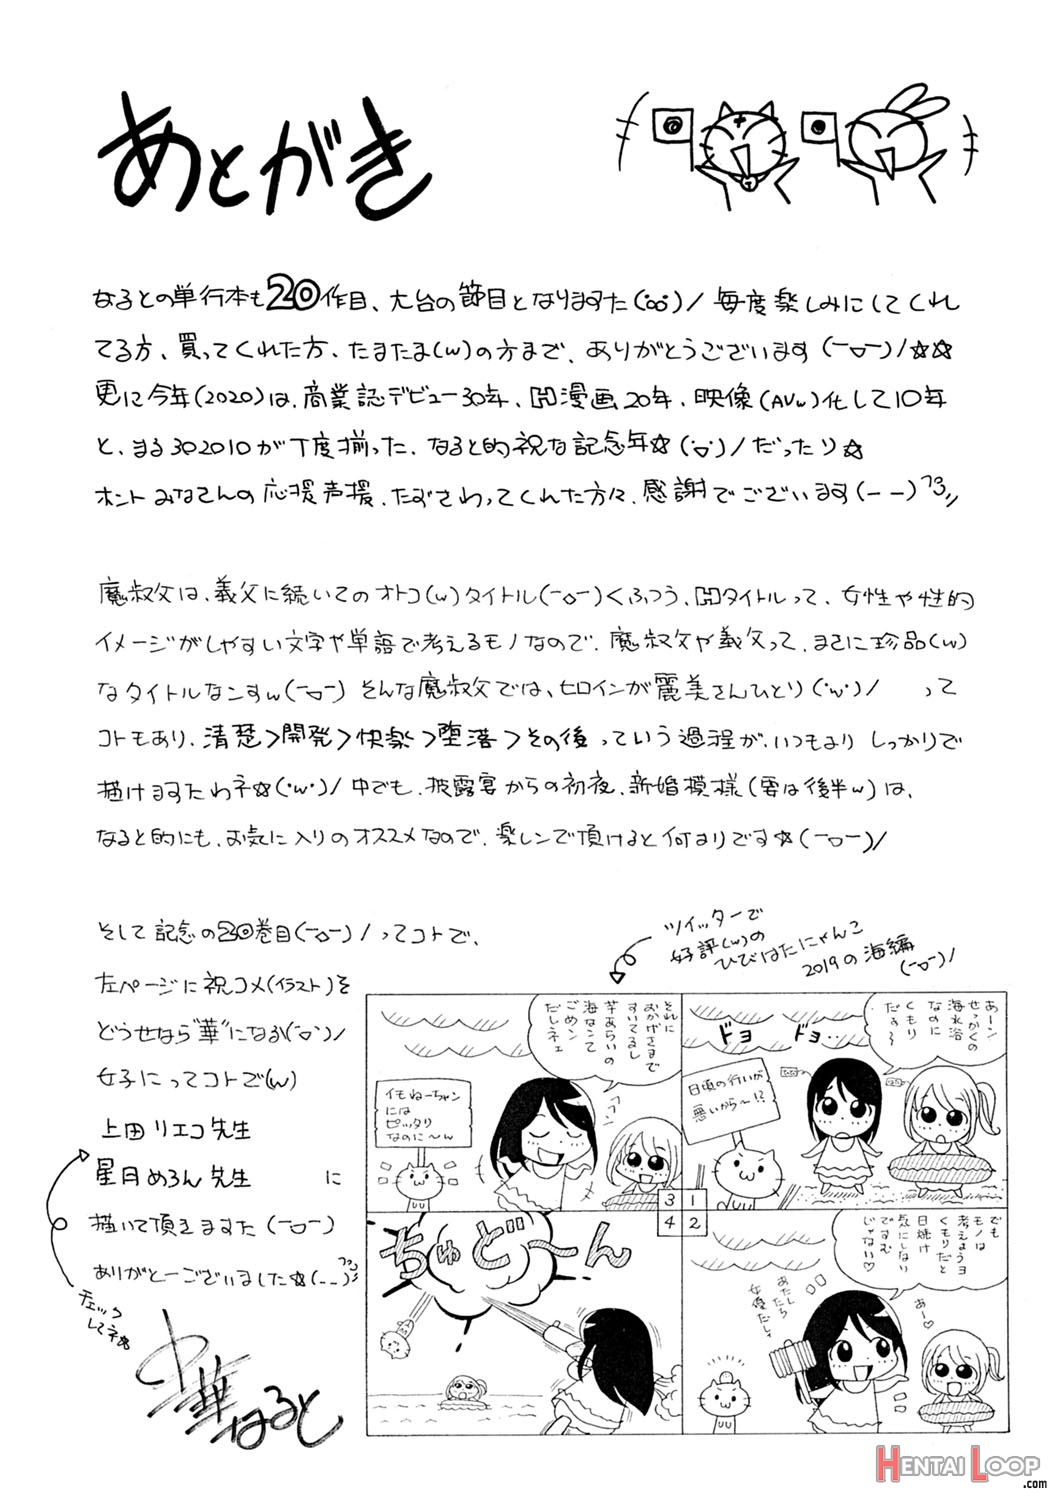 あとがき
なるとの単行本も20作目、大台の節目となりますた(°ω°)ノ 毎度楽しみにしてくれ
てる方、買ってくれた方、たまたま(w)の方まで、ありがとうございます(ー▽ー)ノ☆☆
更に今年(2020)は、商業誌デビュー30年、H漫画20年、映像(AVw)化して10年
と、まる302010が丁度揃った、なると的祝な記念年☆(・▽・)ノだったり☆
ホントみなさんの応援声援、たずさわってくれた方々、感謝でございます(ーー)フヨ〃
魔叔父は、義父に続いてのオトコ(w)タイトル(ー▽ー)くふつう、Hタイトルって、女性や性的
イメージがしやすい文字や単語で考えるモノなので、魔叔父や義父って、まさに珍品(w)
なタイトルなンすw(ー▽ー) そんな魔叔父では、ヒロインが麗美さんひとり(・w・)ノ って
コトもあり、清楚>開発>快楽>堕落>その後っていう過程が、いつもより しっかりで
描けますたわネ☆(・w・)ノ 中でも、披露宴からの初夜、新婚模様(要は後半w)は、
なると的にも、お気に入りのオススメなので、楽しンで頂けると何よりです☆(ー▽ー)ノ
そして記念の20巻目(ー▽ー)ノってコトで、
左ページに祝コメ(イラスト)を
どうせなら“華”になる(▽)ノ
女子にってコトで(w)
上田リエコ先生
星月めろん先生 に
描いて頂きますた(ー▽ー)
ありがとーございました☆(ーー)フヨ〃
チェック
してネ☆
中華なると
ツイッターで
好評(w)の
ひびはたにゃんこ
2019の海編
(ー▽ー)ノ
1
あーン
せっかくの
海水浴
なのに
くもり
だす〜
ドヨ ドヨ‥
日頃の行いが
悪いから〜!?
2
でも
モノは
考えようヨ
くもりだと
日焼け
気にしない
ですむ
じゃない♡
あー♡
あたしら
女優だしィ
3
それに
おかげさまで
すいてるし
芋あらいの
海なンて
ごめン
だしネェ
フフン
イモねーちゃン
には
ピッタリ
なのに〜ん
4
ちゅど〜ん
HENTAI LOOP
.com